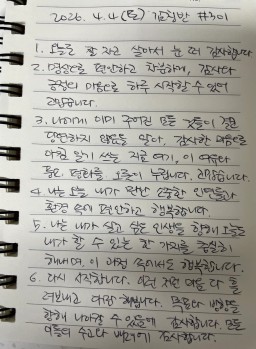 2026. 4. 4 (토) 감정반 #301
1. 오늘도 잘 자고 살아서 눈 떠 감사합니다
2. 명상으로 편안하고 차분하게, 감사와
긍정의 마음으로 하루 시작할 수 있어
고맙습니다.
3. 나에게 이미 주어진 모든 것들이 결코
당연하지 않음을 알아, 감사한 마음으로
아침 일기 쓰는 지금 여기, 이 여유와
풍요, 평화를 오롯이 누립니다. 고맙습니다.
4. 나는 오늘 내가 만난 소중한 인연들과
환경 속에 편안하고 행복합니다.
5. 나는 내가 살고 싶은 인생을 향해 오늘도
내가 할 수 있는 한 가지를 충실히
해내며, 이 과정 속에서도 행복합니다.
6. 다시 시작합니다. 이런 저런 마음 다
흘려보내고 다시 해봅니다. 목표와 방향을
향해 나아갈 수 있음에 감사합니다. 모든
이들의 수고와 배려에 감사합니다.